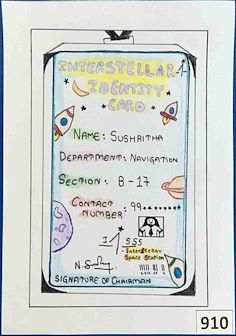 INTERSTELLAR
IDENTITY
CARD
NAME: SUSHRITHA
DEPARTMENT: NAVIGATION
SECTION: B-17
CONTACT
NUMBER: 99********
ISSS
INTERSTELLAR
SPACE STATION
SIGNATURE OF CHAIRMAN
910